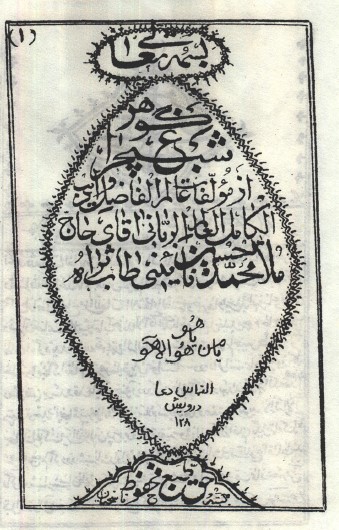 (۱)
بسمه تعالی
گوهر
شب چراغ
از مؤلفات عالم الفاضل ادیب
الکامل العالم الربانی اقای حاج
ملا محمد حسن نائینی طاب ثراه
یا هو
یا من هو الا هو
التماس دعا
درویش
۱۲۸
حق طبع محفوظ